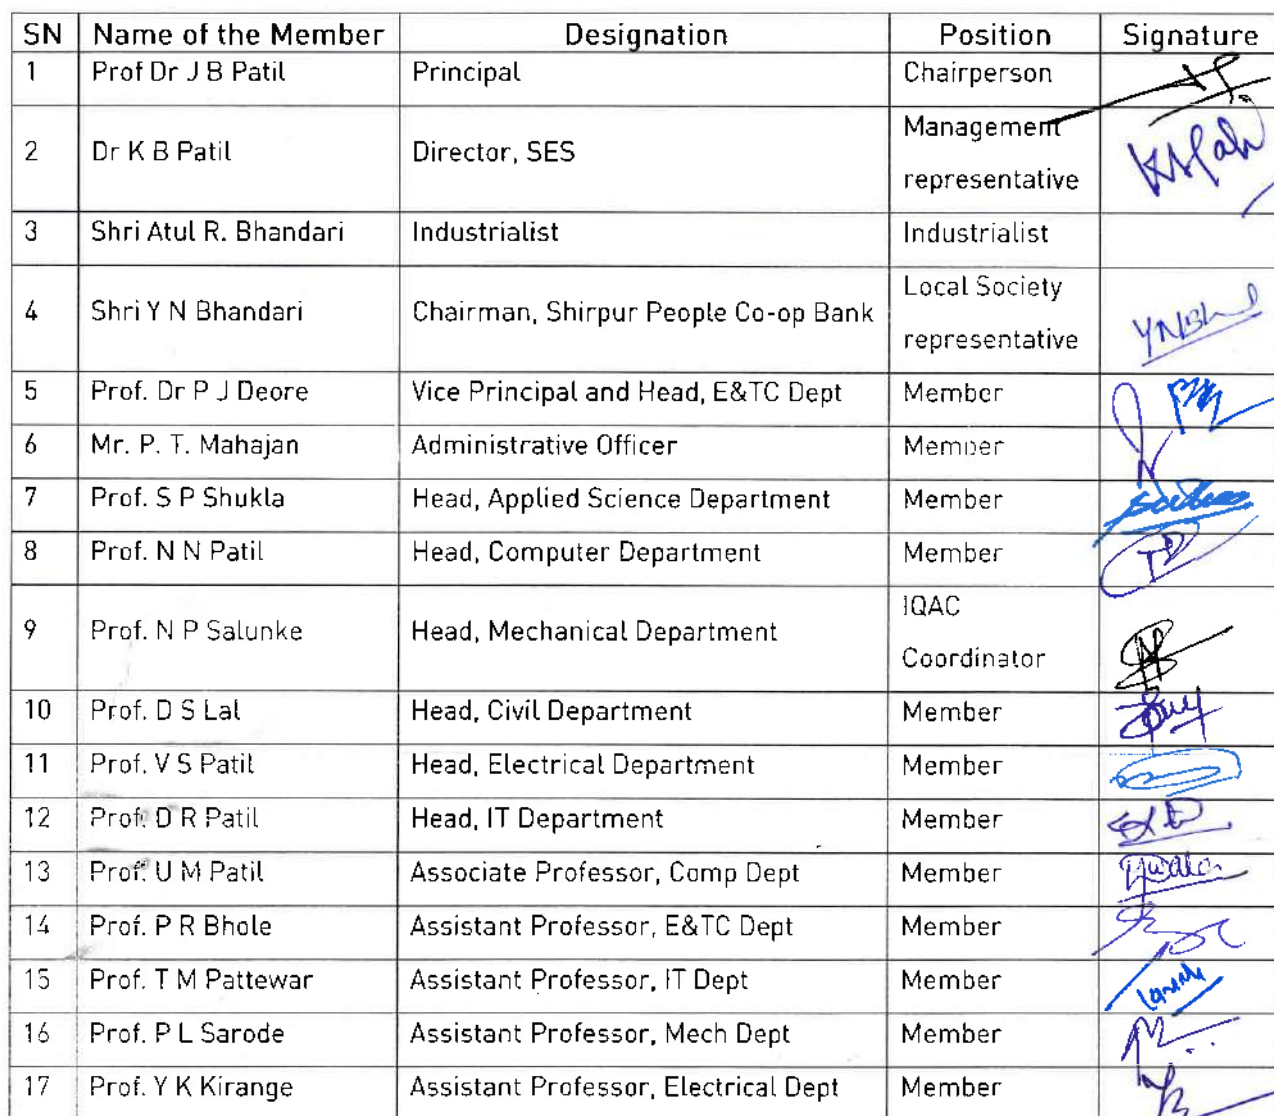 SN Name of the Member Designation Position Signature
1 Prof Dr J B Patil Principal Chairperson
2 Dr K B Patil Director, SES Management
representative
3 Shri Atul R. Bhandari Industrialist Industrialist
4 Shri Y N Bhandari Chairman, Shirpur People Co-op Bank Local Society
representative
5 Prof. Dr P J Deore Vice Principal and Head, E&TC Dept Member
6 Mr. P. T. Mahajan Administrative Officer Member
7 Prof. S P Shukla Head, Applied Science Department Member
8 Prof. N N Patil Head, Computer Department Member
9 Prof. N P Salunke Head, Mechanical Department IQAC
Coordinator
10 Prof. D S Lal Head, Civil Department Member
11 Prof. V S Patil Head, Electrical Department Member
12 Prof. D R Patil Head, IT Department Member
13 Prof. U M Patil Associate Professor, Comp Dept Member
14 Prof. P R Bhole Assistant Professor, E&TC Dept Member
15 Prof. T M Pattewar Assistant Professor, IT Dept Member
16 Prof. P L Sarode Assistant Professor, Mech Dept Member
17 Prof. Y K Kirange Assistant Professor, Electrical Dept Member